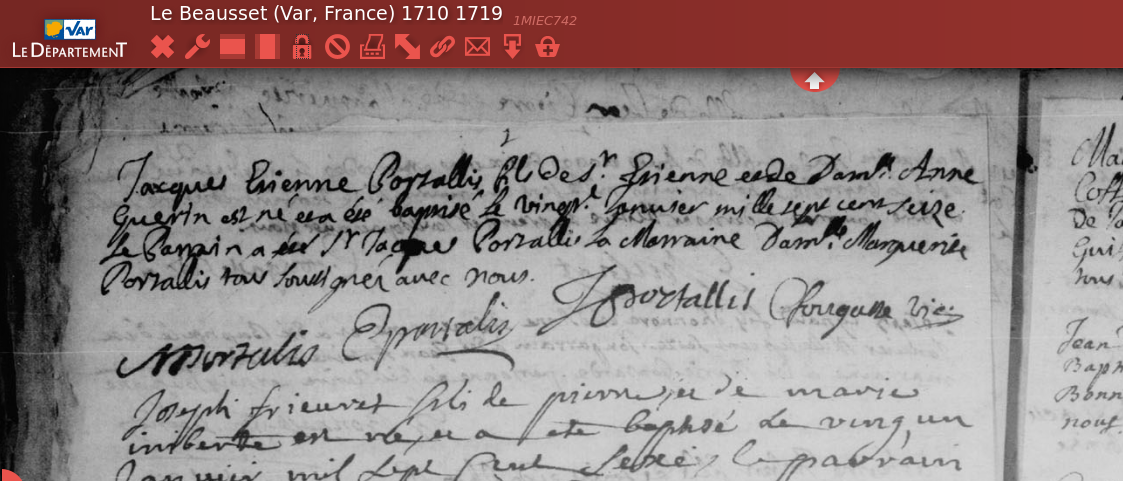 Le Beausset (Var, France) 1710 1719
1MIEC742
VAR
LE DÉPARTEMENT
Jacques Etienne Portallis fils de Sr. Etienne et de Damlle. Anne
Guerin est né et a été baptisé le vingt janvier mille sept cent seize.
Le Parrain a été Sr Jacques Portallis la Marraine Damlle Marguerite
Portallis tous soussignés avec nous.
JPortallis
Eportalis
MPortalis
Joseph frieuret fils de pierre et de marie
imberte est né et a ete baptisé le vingt un
Janvier mil sept cent seize le parrain
Jean
Bapt
Bonn
nous